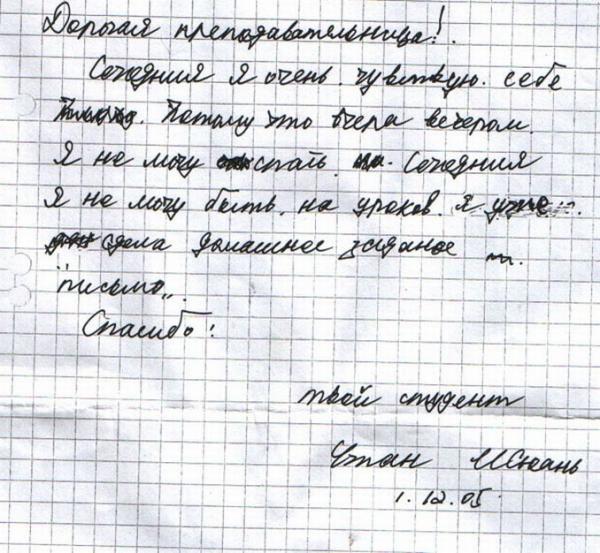 Дорогая преподавательница!.
Сечедния я очень. чувствую. себе
Потому что вчера вечером.
Я не мочу спать. Сочедния
Я не мочу быть. на уроков. я уже
сдела домашнее заданое
"письмо„.
Спасибо!
твой студент
Чжан Исюань
1.12.05